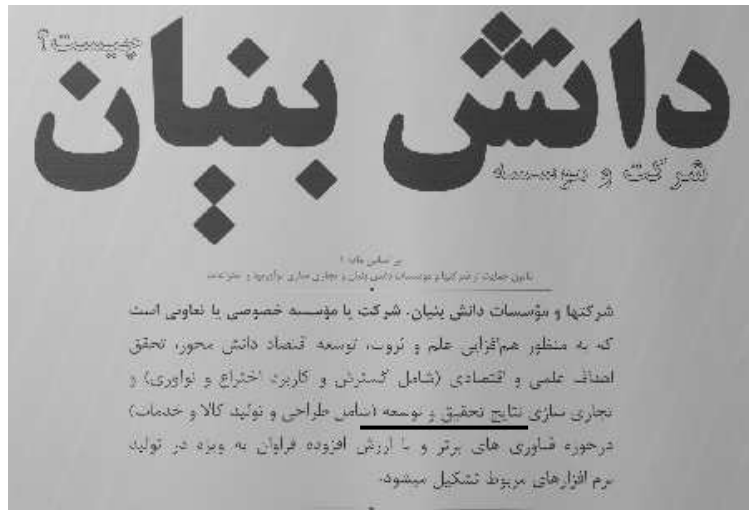 دانش بنیان
شرکت و موسسه
چیست؟
بر اساس ماده ۱
قانون حمایت از شرکتها و موسسات دانش بنیان و تجاری سازی نوآوریها و اختراعات
شرکتها و مؤسسات دانش بنیان، شرکت یا مؤسسه خصوصی یا تعاونی است
که به منظور هم‌افزایی علم و ثروت، توسعه اقتصاد دانش محور، تحقق
اهداف علمی و اقتصادی (شامل گسترش و کاربرد اختراع و نوآوری) و
تجاری سازی نتایج تحقیق و توسعه (شامل طراحی و تولید کالا و خدمات)
درحوزه فناوری های برتر و با ارزش افزوده فراوان به ویژه در تولید
نرم افزارهای مربوط تشکیل میشود.